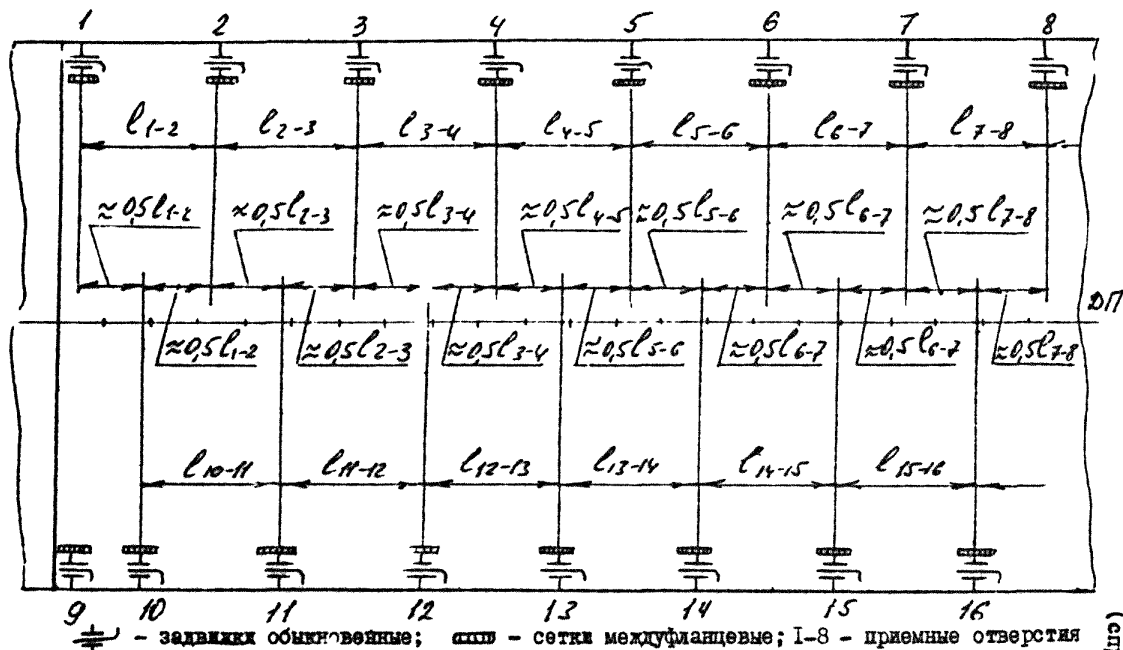 1 2 3 4 5 6 7 8
l1-2 l2-3 l3-4 l4-5 l5-6 l6-7 l7-8
≈0,5l1-2 ≈0,5l2-3 ≈0,5l3-4 ≈0,5l4-5 ≈0,5l5-6 ≈0,5l6-7 ≈0,5l7-8
ДП
≈0,5l1-2 ≈0,5l2-3 ≈0,5l3-4 ≈0,5l5-6 ≈0,5l6-7 ≈0,5l6-7 ≈0,5l7-8
l10-11 l11-12 l12-13 l13-14 l14-15 l15-16
9 10 11 12 13 14 15 16
- задвижки обыкновенные; - сетки междуфланцевые; I-8 - приемные отверстия